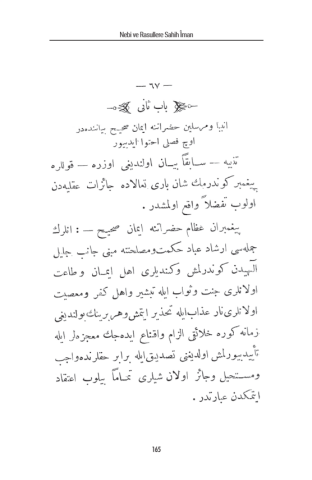 Nebi ve Rasullere Sahih İman
— ٦٧ —
باب ثانى
انبيا ومرسلين حضراتنه ايمان صحيح بياننده‌در
اوچ فصلى احتوا ايدييور
تنبيه — سابقاً بيان اولنديغى اوزره — قوللره
پيغمبر كوندرمك شان بارى تعالاده جائزات عقليه‌دن
اولوب تفضلاً واقع اولمشدر .
پيغمبران عظام حضراتنه ايمان صحيح — : انلرك
جمله‌سى ارشاد عباد حكمت ومصلحتنه مبنى جانب جليل
آلهيدن كوندرلمش وكنديلرى اهل ايمان وطاعت
اولانلرى جنت وثواب ايله تبشير واهل كفر ومعصيت
اولانلرى نار عذاب ايله تحذير ايتمش وهر برينك بولنديغى
زمانه كوره خلائقى الزام واقناع ايده‌جك معجزه‌لر ايله
تأييد بيورلمش اولديغنى تصديق ايله برابر حقلرنده واجب
ومستحيل وجائز اولان شيلرى تماماً بيلوب اعتقاد
ايتمكدن عبارتدر .
165